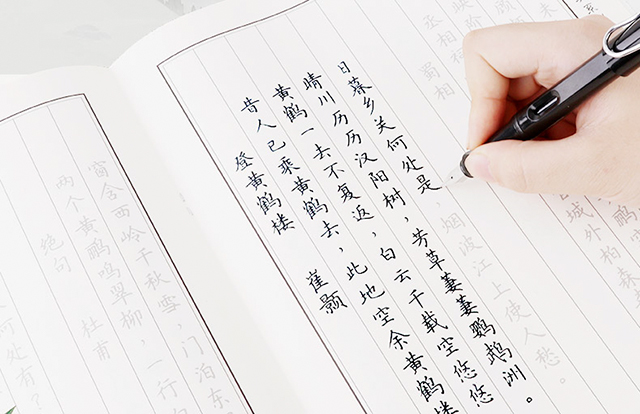 何处有？
绝句 杜甫
两个黄鹂鸣翠柳，一行
窗含西岭千秋雪，门泊东
登黄鹤楼 崔颢
昔人已乘黄鹤去，此地空余黄鹤楼
黄鹤一去不复返，白云千载空悠悠
晴川历历汉阳树，芳草萋萋鹦鹉洲。
日暮乡关何处是，烟波江上使人愁。
蜀相
丞相 城外柏森
映阶